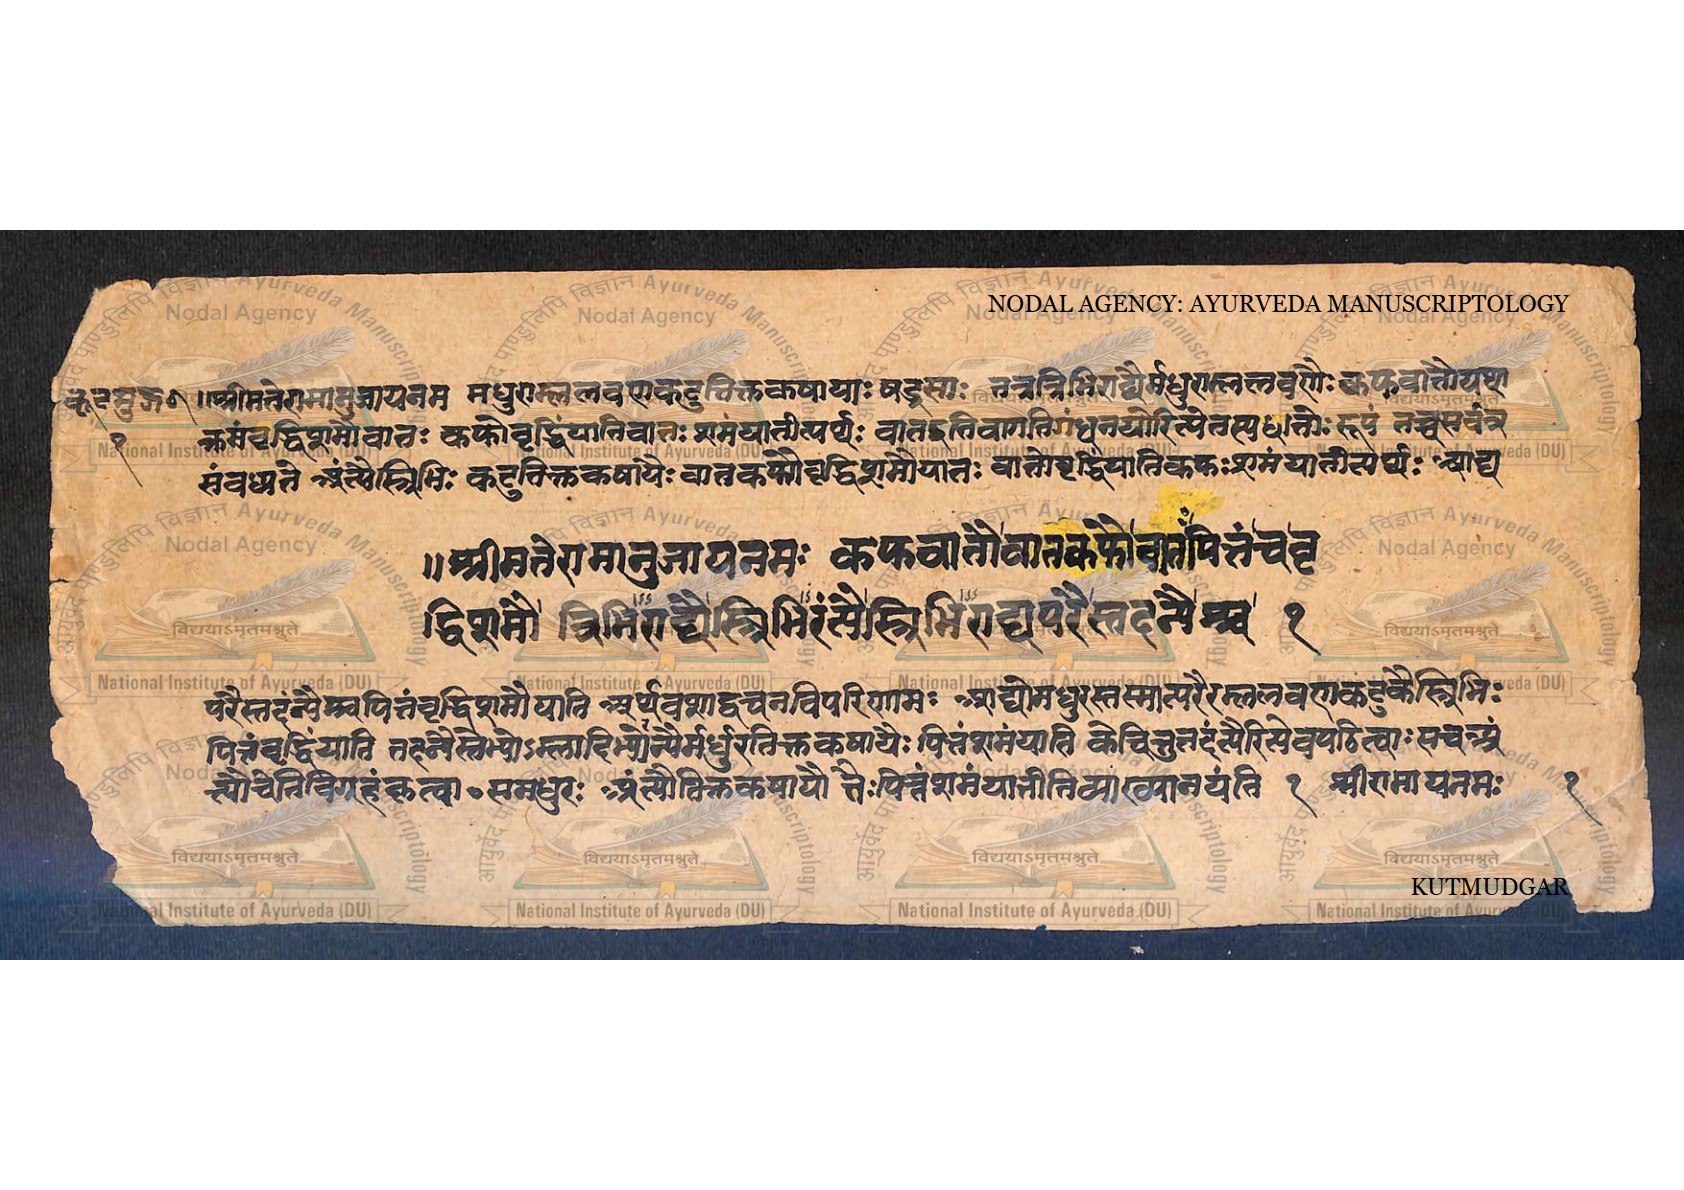 NODAL AGENCY: AYURVEDA MANUSCRIPTOLOGY
॥श्रीमतेरामानुजायनम मधुराम्ललवणकटुतिक्तकषायाः षड्रसाः तत्रत्रिभिराद्यैर्मधुराम्ललवणैः कफवातौयथा
१
क्रमंवृद्धिशमौयातः कफोवृद्धिंयातिवातः शमंयातीत्यर्थः वातइतिवागतिगंधनयोरित्येतस्यधातोः रूपं तच्चसर्वत्र
संवध्यते अंत्यैस्त्रिभिः कटुतिक्तकषायैः वातकफौवृद्धिशमौयातः वातोवृद्धिंयातिकफःशमंयातीत्यर्थः आद्य
॥श्रीमतेरामानुजायनमः कफवातौवातकफौवातंपित्तंचवृ
द्धिशमौ त्रिभिराद्यैस्त्रिभिरंत्यैस्त्रिभिराद्यपरैस्तदन्यैश्च १
परैस्तदन्यैश्चपित्तंवृद्धिशमौयाति अर्थवशाद्वचनविपरिणामः आद्योमधुरस्तस्मात्परैरम्ललवणकटुकैस्त्रिभिः
पित्तंवृद्धिंयाति तदन्यैस्तेभ्योऽम्लादिभ्योन्यैर्मधुरतिक्तकषायैः पित्तंशमंयाति केचित्तुतदंत्यैरित्येवपठित्वाः सचअं
त्यौचेतिविग्रहंकृत्वा॰समधुरः अंत्यौतिक्तकषायौ तैःपित्तंशमंयातीतिव्याख्यानयंति १ श्रीरामायनमः १
KUTMUDGAR